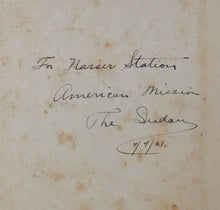 For Nasser Station
American Mission,
The Sudan
4/4/21.